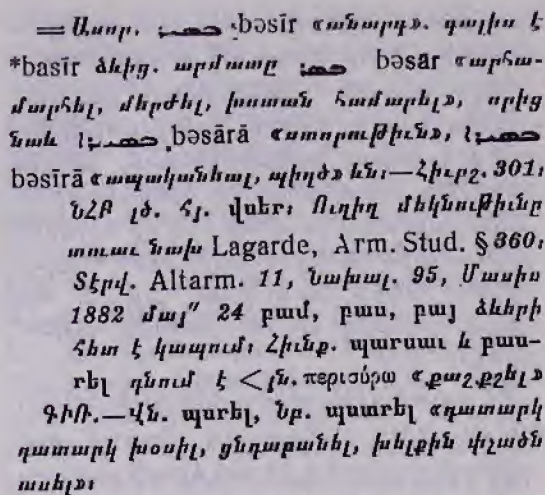 =Ասոր. ܒܣܝܪ bəsīr «անարգ». գալիս է
*basīr ձևից. արմատը ܒܣܪ bəsār «արհա-
մարհել, մերժել, խոտան համարել», որից
նաև ܒܣܪܐ bəsārā «ստորութիւն», ܒܣܝܪܐ
bəsīrā «ապականեալ, պիղծ» ևն։—Հիւբշ. 301։
ՆՀԲ լծ. հյ. վսեր։ Ուղիղ մեկնութիւնը
տուաւ նախ Lagarde, Arm. Stud. § 360։
Տէրվ. Altarm. 11, Նախալ. 95, Մասիս
1882 մայ՛՛ 24 բամ, բաս, բայ ձևերի
հետ է կապում։ Հիւնք. պարսաւ և բաս-
րել դնում է <յն. περισύρω «քաշքշել»
ԳԻՌ.—Վն. պսրել, Նբ. պստրել «դատարկ
դատարկ խօսիլ, ցնդաբանել, խելքին փչածն
ասել»։